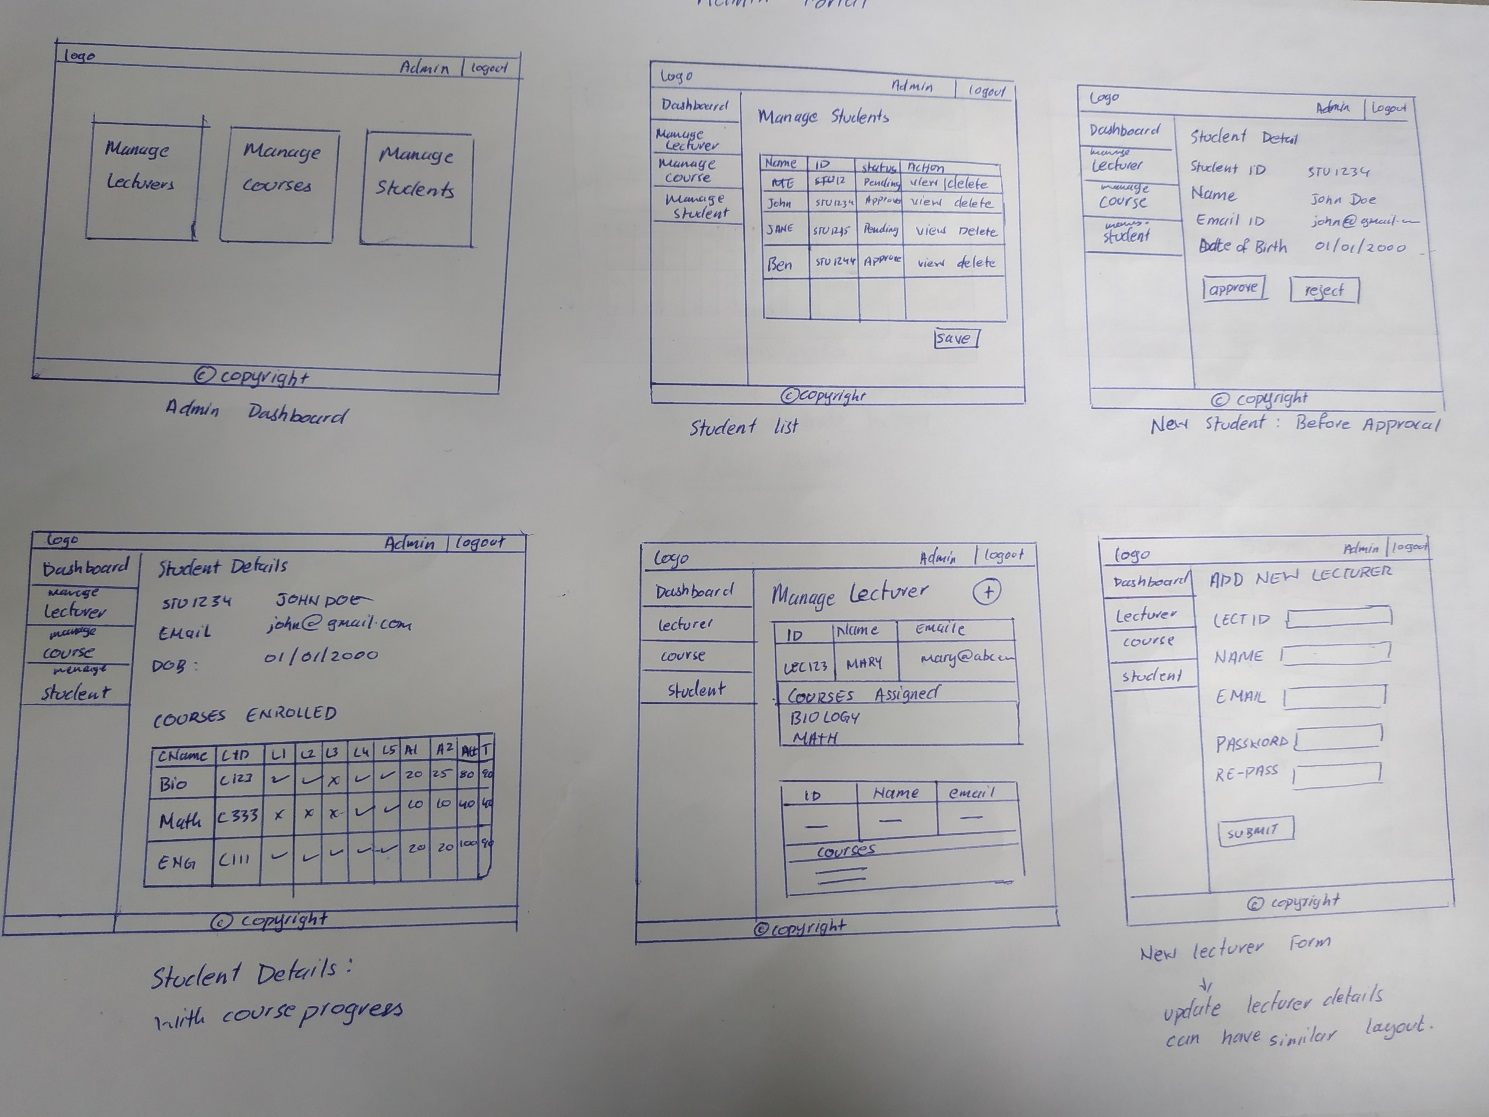 Admin Portal
Logo
Admin | logout
Manage Lecturers
Manage Courses
Manage Students
© copyright
Admin Dashboard
Logo
Admin | logout
Dashboard
Manage Lecturer
Manage Course
Manage Student
Manage Students
Name ID status Action
STU12 Pending view delete
John STU1234 Approve view delete
JANE STU1245 Pending view Delete
Ben STU1244 Approve view delete
save
© copyright
Student list
Logo
Admin | Logout
Dashboard
manage Lecturer
manage course
student
Student Detail
Student ID STU1234
Name John Doe
Email ID john@gmail.
Date of Birth 01/01/2000
approve reject
© copyright
New Student: Before Approval
Logo
Admin | logout
Dashboard
manage Lecturer
manage course
manage student
Student Details
STU1234 JOHN DOE
EMail john@gmail.com
DOB: 01/01/2000
COURSES ENROLLED
CName CID L1 L2 L3 L4 L5 A1 A2 Att T
Bio C123 ✓ ✓ x ✓ ✓ 20 25 80 90
Math C333 x x x ✓ ✓ 10 10 40 40
ENG C111 ✓ ✓ ✓ ✓ ✓ 20 20 100 90
© copyright
Student Details:
With course progress
Logo
Admin | logout
Dashboard
lecturer
course
student
Manage Lecturer +
ID Name Emaile
LEC123 MARY mary@abc
COURSES Assigned
BIOLOGY
MATH
ID Name email
— — —
courses
© copyright
logo
Admin | logout
Dashboard
Lecturer
course
student
ADD NEW LECTURER
LECT ID
NAME
EMAIL
PASSWORD
RE-PASS
SUBMIT
© copyright
New lecturer Form
↓
update lecturer details
can have similar layout.